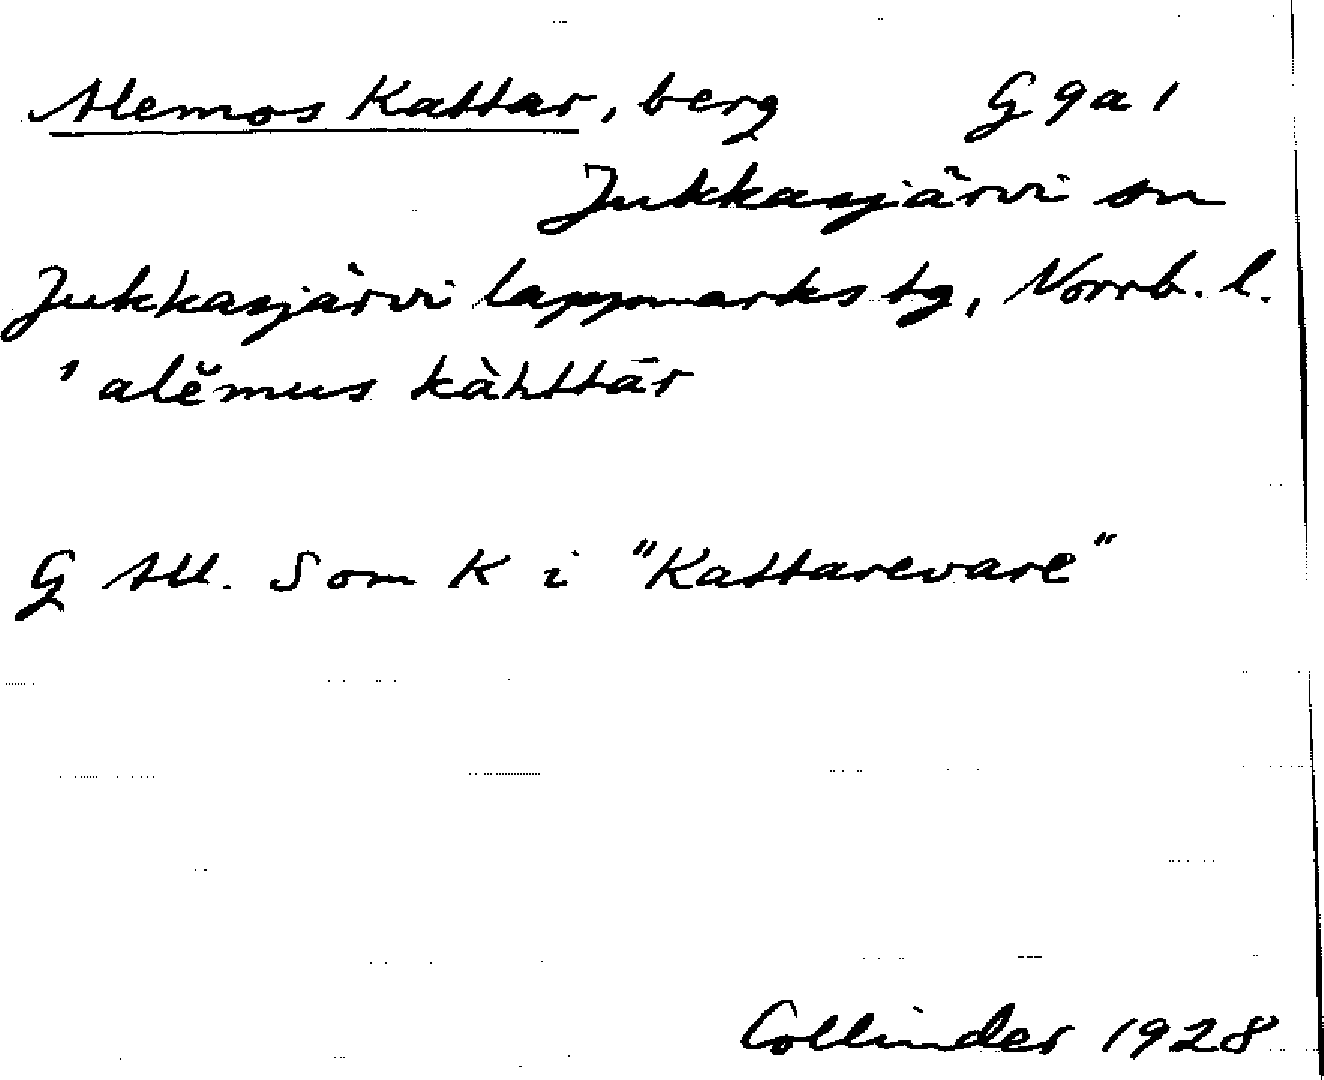 Alemos Kattar, berg G 9 a 1
Jukkasjärvi sn
Jukkasjärvi lappmarks tg, Norrb. l.
' alĕmus kàhttār
G All. Som K i "Kattarevare"
Collinder 1928